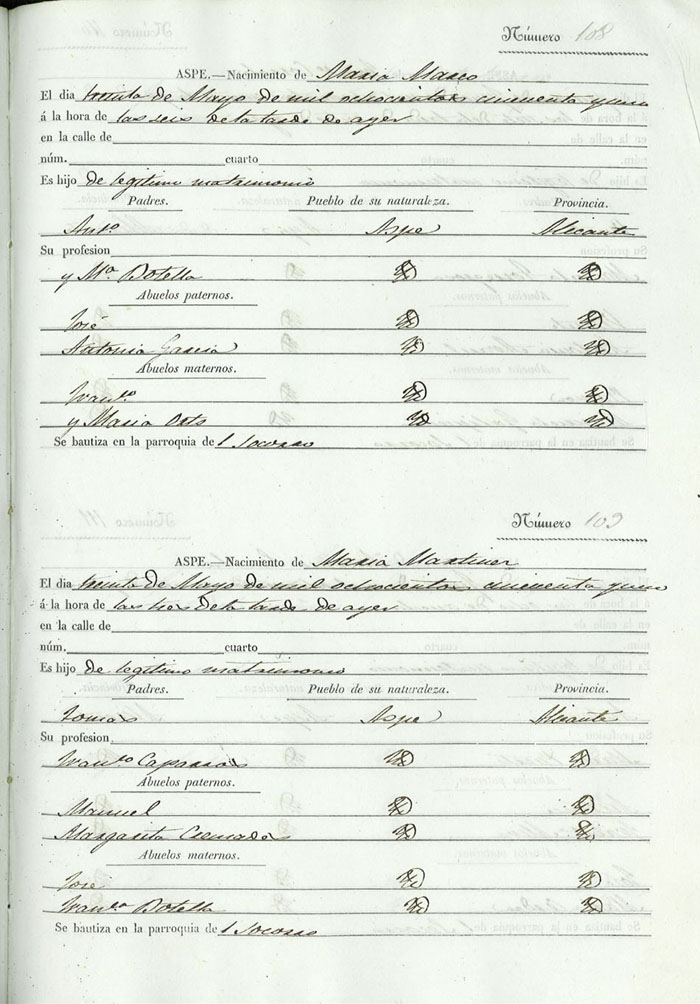 Número 108
ASPE.—Nacimiento de Maria Marco
El dia treinta de Mayo de mil ochocientos cincuenta y uno
á la hora de las seis de la tarde de ayer
en la calle de
núm. cuarto
Es hijo de legitimo matrimonio
Padres. Pueblo de su naturaleza. Provincia.
Antº Aspe Alicante
Su profesion
y Mª Botella
Abuelos paternos.
José
Antonia Garcia
Abuelos maternos.
Francº
y Maria Orts
Se bautiza en la parroquia de l Socorro
Número 109
ASPE.—Nacimiento de Maria Martinez
El dia treinta de Mayo de mil ochocientos cincuenta y uno
á la hora de las tres de la tarde de ayer
en la calle de
núm. cuarto
Es hijo de legitimo matrimonio
Padres. Pueblo de su naturaleza. Provincia.
Tomas Aspe Alicante
Su profesion
Franca Caparros
Abuelos paternos.
Manuel
Margarita Cremades
Abuelos maternos.
José
Franca Botella
Se bautiza en la parroquia de l Socorro